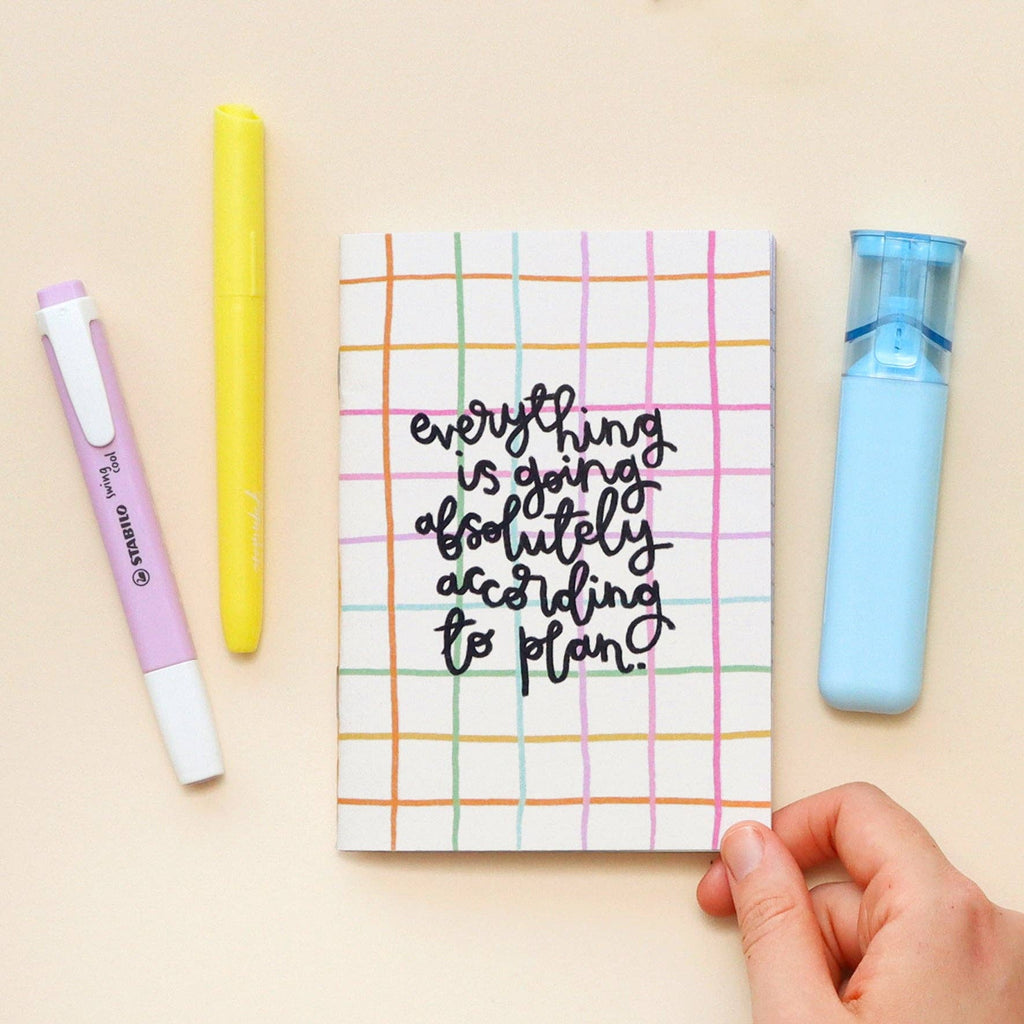 everything
is going
absolutely
according
to plan.
STABILO swing
cool